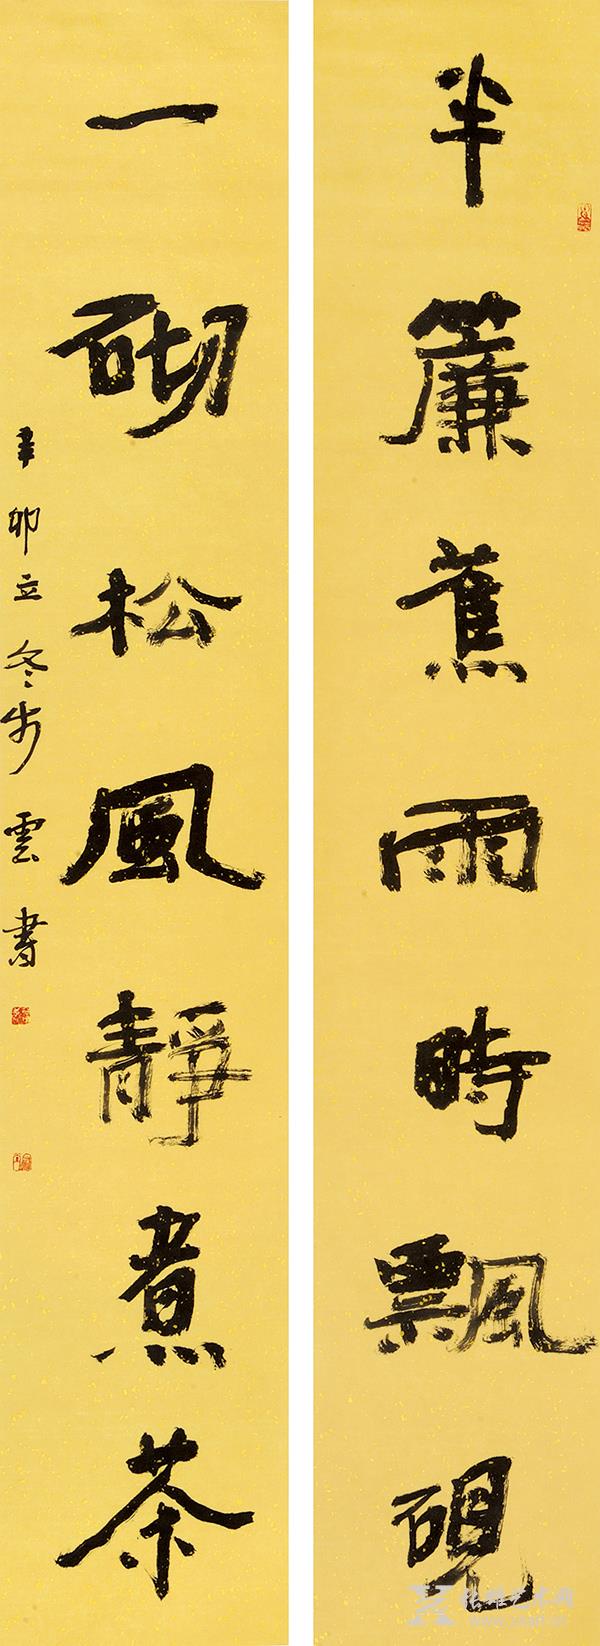 半簾蕉雨時飄硯
一砌松風靜煮茶
辛卯立冬步雲書